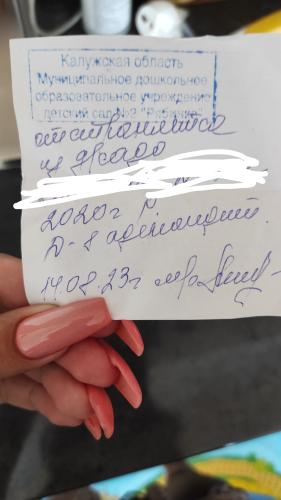 Калужская область
Муниципальное дошкольное
образовательное учреждение
детский сад №2 "Рябинка"
отстраняется
из д/садо
2020г р
D-s аденоидит.
14.08.23г